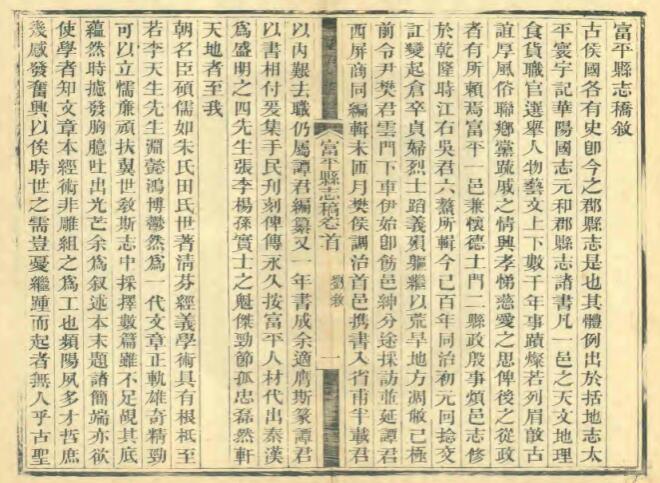 富平縣志稿敘
古侯國各有史卽今之郡縣志是也其體例出於括地志太
平寰宇記華陽國志元和郡縣志諸書凡一邑之天文地理
食貨職官選舉人物藝文上下數千年事蹟燦若列眉敦古
誼厚風俗聯鄉黨疏戚之情興孝悌慈愛之思俾後之從政
者有所賴焉富平一邑兼懷德土門二縣政殷事煩邑志修
於乾隆時江右吳君六鰲所輯今已百年同治初元回捻交
訌變起倉卒貞婦烈士蹈義殞軀繼以荒旱地方凋敝已極
前令尹樊君雲門下車伊始卽飭邑紳分途採訪並延譚君
西屏商同編輯未匝月樊侯調治首邑携書入省甫半載君
富平縣志稿卷首
劉敘
一
以內艱去職仍屬譚君編纂又一年書成余適膺斯篆譚君
以書相付爰集手民刋刻俾傳永久按富平人材代出秦漢
爲盛明之四先生張李楊孫實士之魁傑勁節孤忠磊然軒
天地者至我
朝名臣碩儒如朱氏田氏世著淸芬經義學術具有根柢至
若李天生先生淵懿鴻博鬱然爲一代文章正軌雄奇精勁
可以立懦廉頑扶翼世敎斯志中採擇數篇雖不足覘其底
蘊然時攄發胸臆吐出光芒余爲叙述本末題諸簡端亦欲
使學者知文章本經術非雕組之爲工也頻陽夙多才哲庶
幾感發奮興以俟時世之需豈憂繼踵而起者無人乎古聖